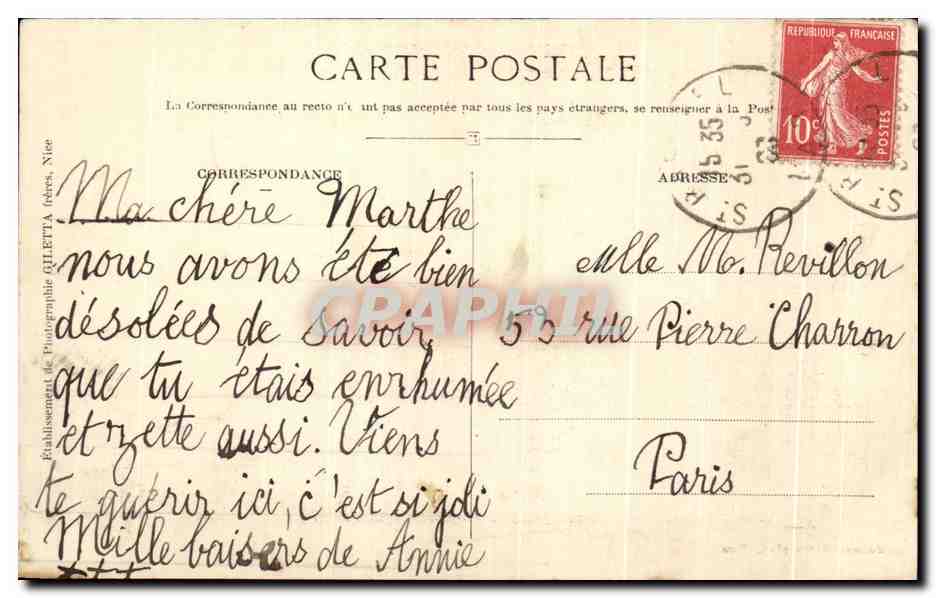 CARTE POSTALE
La Correspondance au recto n'est pas acceptée par tous les pays étrangers, se renseigner à la Poste
CORRESPONDANCE
ADRESSE
Ma chére Marthe
nous avons été bien
désolées de savoir
que tu étais enrhumée
et zette aussi. Viens
te guérir ici, c'est si joli
Mille baisers de Annie
Mlle M. Revillon
59 rue Pierre Charron
Paris
Établissement de Photographie GILETTA frères, Nice
REPUBLIQUE FRANÇAISE
10c
POSTES
CPAPHIL